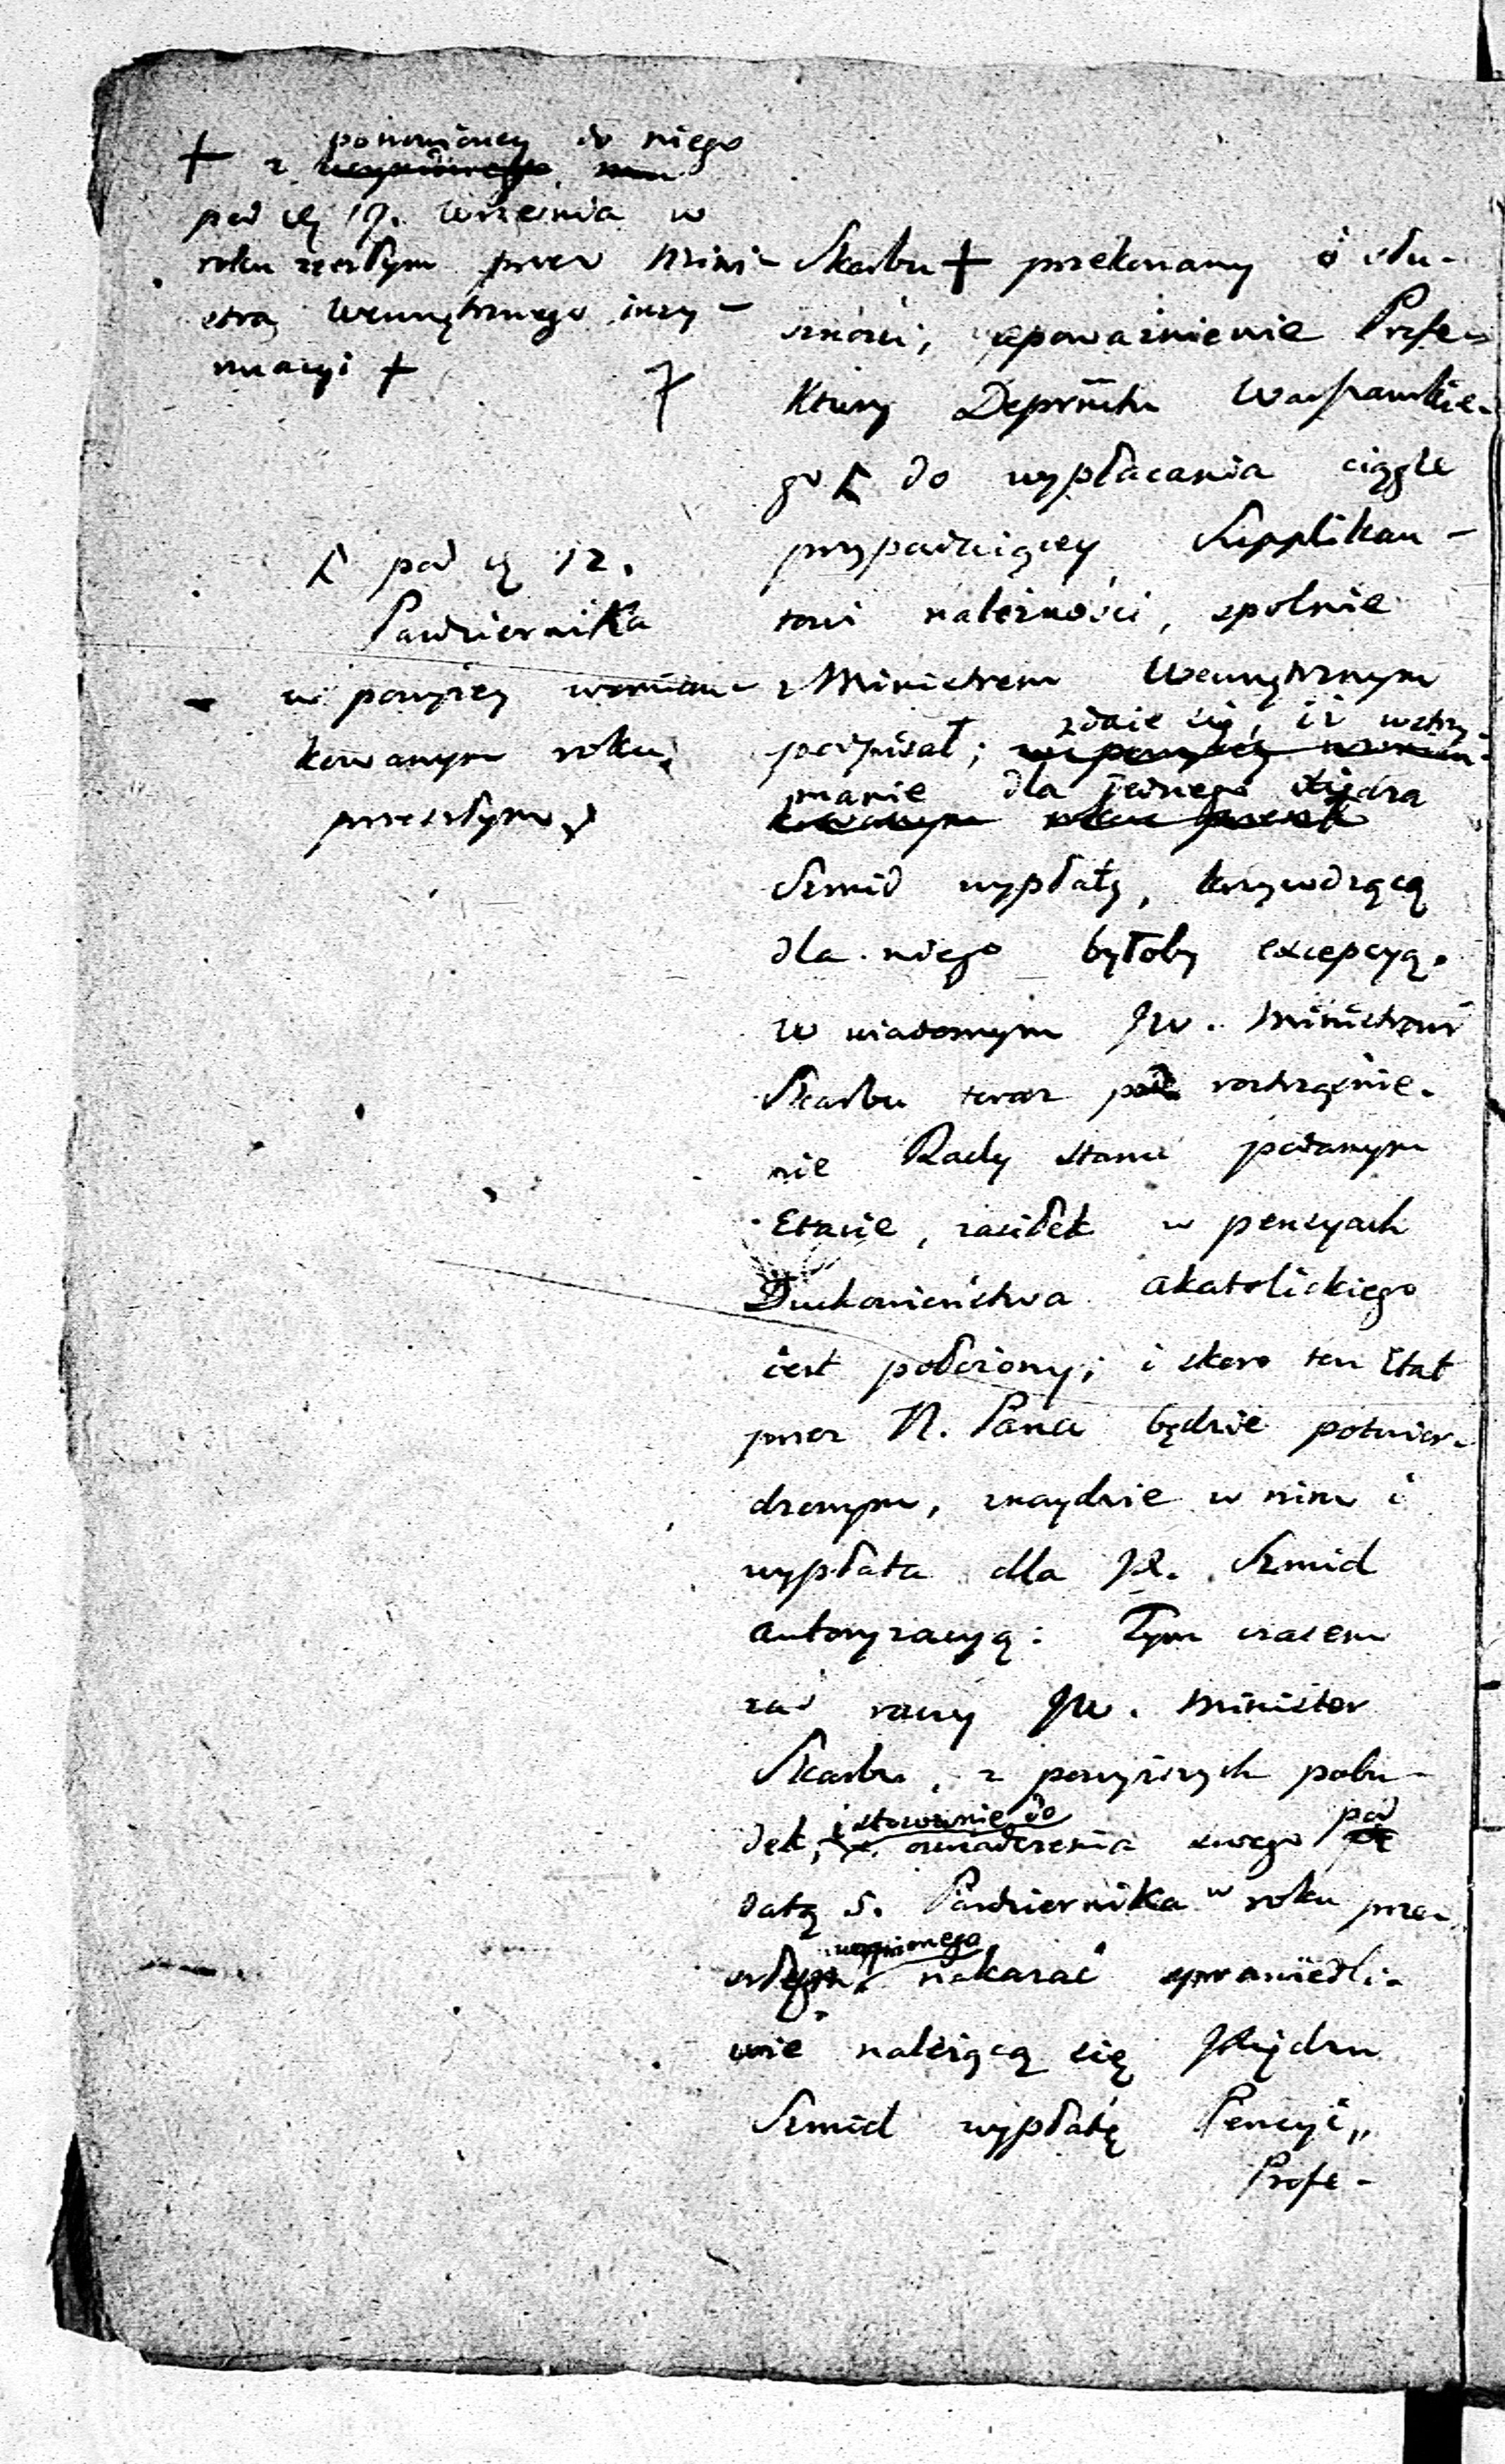 ponowioney do niego
+ z uczynionego mu
pod dź 17. Września w
roku zeszłym przez Mini-
stra Wewnętrznego inzy-
nuacyi +
Skarbu + przekonany o słu-
szności, upoważnienie Prefe-
ktury Deprtmtu Warszawskie-
go do wypłacania ciągle
przypadaiącey Supplikan-
towi należności, spolnie
z Ministrem Wewnętrznym
podpisał; zdaie się, iż wstrzy-
manie dla jednego Xiędza
Szmid wypłaty, krzywdzącą
dla niego byłoby excepcyą.
W wiadomym JW. Ministrowi
Skarbu teraz pod roztrząśnie-
nie Rady Stanu podanym
Etacie, zasiłek w pensyach
Duchowieństwa akatolickiego
iest położony; i skoro ten Etat
przez N. Pana będzie potwier-
dzonym, znaydzie w nim i
wypłata dla JX. Szmid
autoryzacyą: Tym czasem
zaś raczy JW. Minister
Skarbu, z powyższych pobu-
dek, i stosownie do oświadczenia swego pod
datą 5. Pazdziernika w roku prze-
szłym uczynionego nakazać sprawiedli-
wie należącą się JXiędzu
Szmid wypłatę Pensyi,,
Profe-
pod dź 12.
Pazdziernika
w powyżey wzmian-
kowanym roku
przeszłym